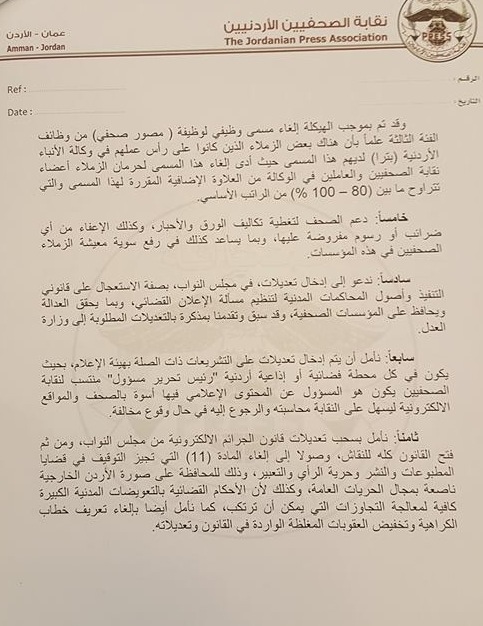 نقابة الصحفيين الأردنيين
The Jordanian Press Association
PRESS
عمان - الأردن
Amman - Jordan
الرقم :
Ref :
التاريخ :
Date :
وقد تم بموجب الهيكلة إلغاء مسمى وظيفي لوظيفة ( مصور صحفي) من وظائف
الفئة الثالثة علماً بأن هناك بعض الزملاء الذين كانوا على رأس عملهم في وكالة الأنباء
الأردنية (بترا) لديهم هذا المسمى حيث أدى إلغاء هذا المسمى لحرمان الزملاء أعضاء
نقابة الصحفيين والعاملين في الوكالة من العلاوة الإضافية المقررة لهذا المسمى والتي
تتراوح ما بين (80 – 100 %) من الراتب الأساسي.
خامساً: دعم الصحف لتغطية تكاليف الورق والأحبار، وكذلك الإعفاء من أي
ضرائب أو رسوم مفروضة عليها، وبما يساعد كذلك في رفع سوية معيشة الزملاء
الصحفيين في هذه المؤسسات.
سادساً: ندعو إلى إدخال تعديلات، في مجلس النواب، بصفة الاستعجال على قانوني
التنفيذ وأصول المحاكمات المدنية لتنظيم مسألة الإعلان القضائي، وبما يحقق العدالة
ويحافظ على المؤسسات الصحفية، وقد سبق وتقدمنا بمذكرة بالتعديلات المطلوبة إلى وزارة
العدل.
سابعاً: نأمل أن يتم إدخال تعديلات على التشريعات ذات الصلة بهيئة الإعلام، بحيث
يكون في كل محطة فضائية أو إذاعية أردنية "رئيس تحرير مسؤول" منتسب لنقابة
الصحفيين يكون هو المسؤول عن المحتوى الإعلامي فيها أسوة بالصحف والمواقع
الالكترونية ليسهل على النقابة محاسبته والرجوع إليه في حال وقوع مخالفة.
ثامناً: نأمل بسحب تعديلات قانون الجرائم الالكترونية من مجلس النواب، ومن ثم
فتح القانون كله للنقاش، وصولا إلى الغاء المادة (11) التي تجيز التوقيف في قضايا
المطبوعات والنشر وحرية الرأي والتعبير، وذلك للمحافظة على صورة الأردن الخارجية
ناصعة بمجال الحريات العامة، وكذلك لأن الأحكام القضائية بالتعويضات المدنية الكبيرة
كافية لمعالجة التجاوزات التي يمكن أن ترتكب، كما نأمل أيضا بإلغاء تعريف خطاب
الكراهية وتخفيض العقوبات المغلظة الواردة في القانون وتعديلاته.